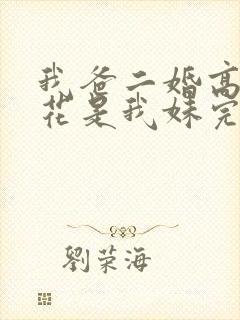 我爸二婚高
花是我妹完
劉荣海